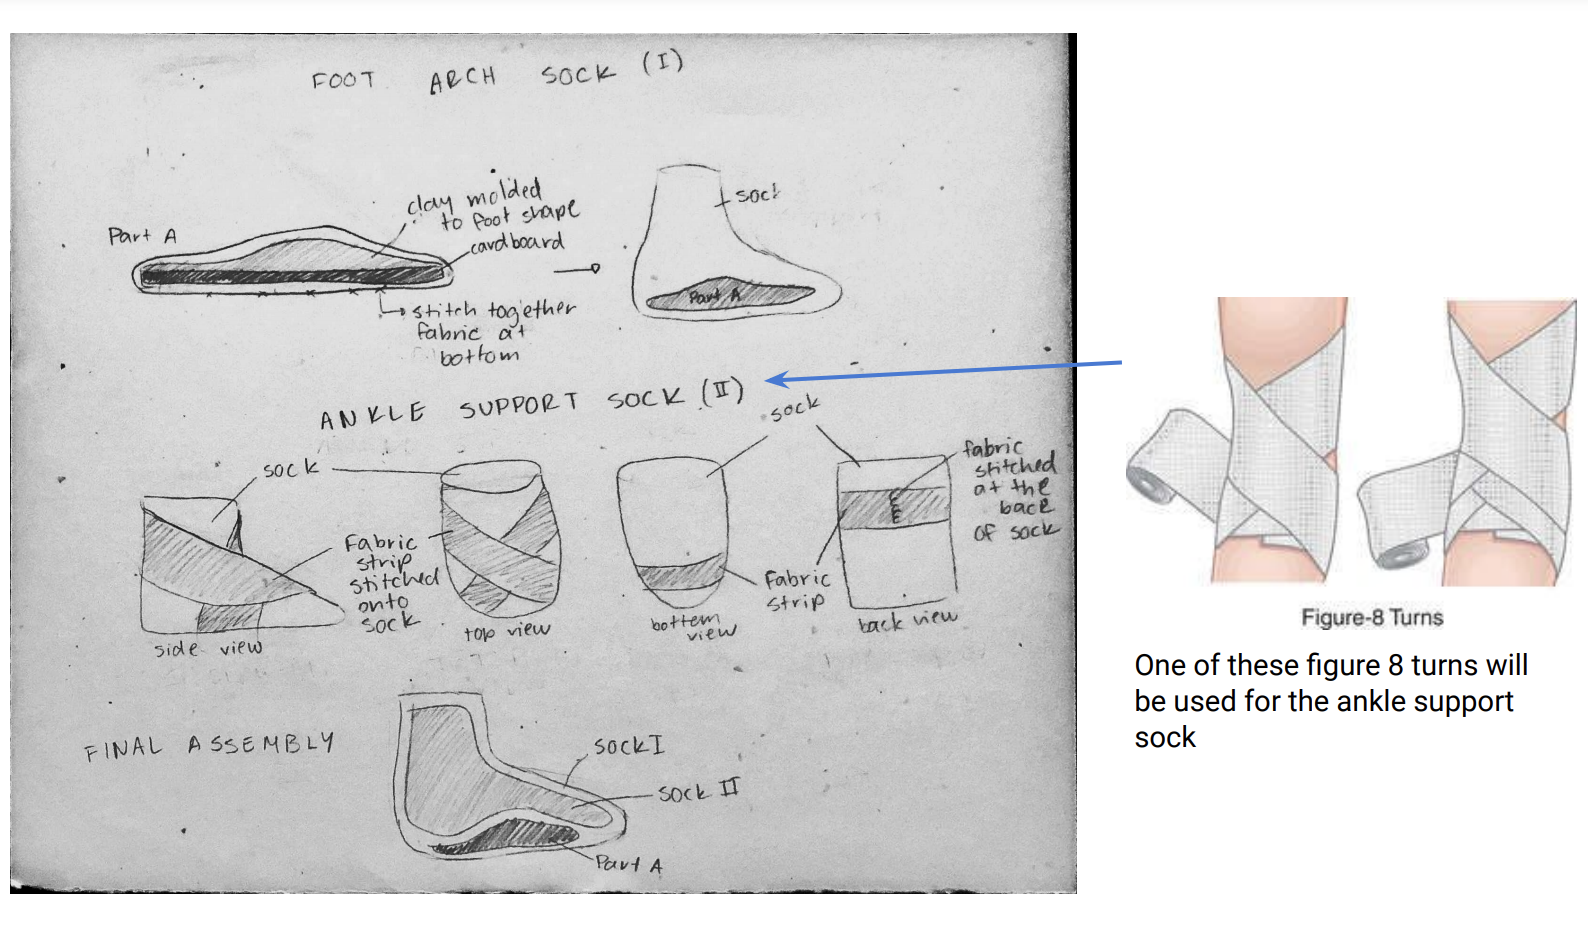 FOOT ARCH SOCK (I)
Part A
clay molded
to foot shape
cardboard
stitch together
fabric at
bottom
sock
Part A
ANKLE SUPPORT SOCK (II)
sock
sock
fabric
stitched
at the
back
of sock
Fabric
strip
stitched
onto
sock
Fabric
strip
side view
top view
bottom
view
back view
FINAL ASSEMBLY
sock I
sock II
Part A
Figure-8 Turns
One of these figure 8 turns will
be used for the ankle support
sock